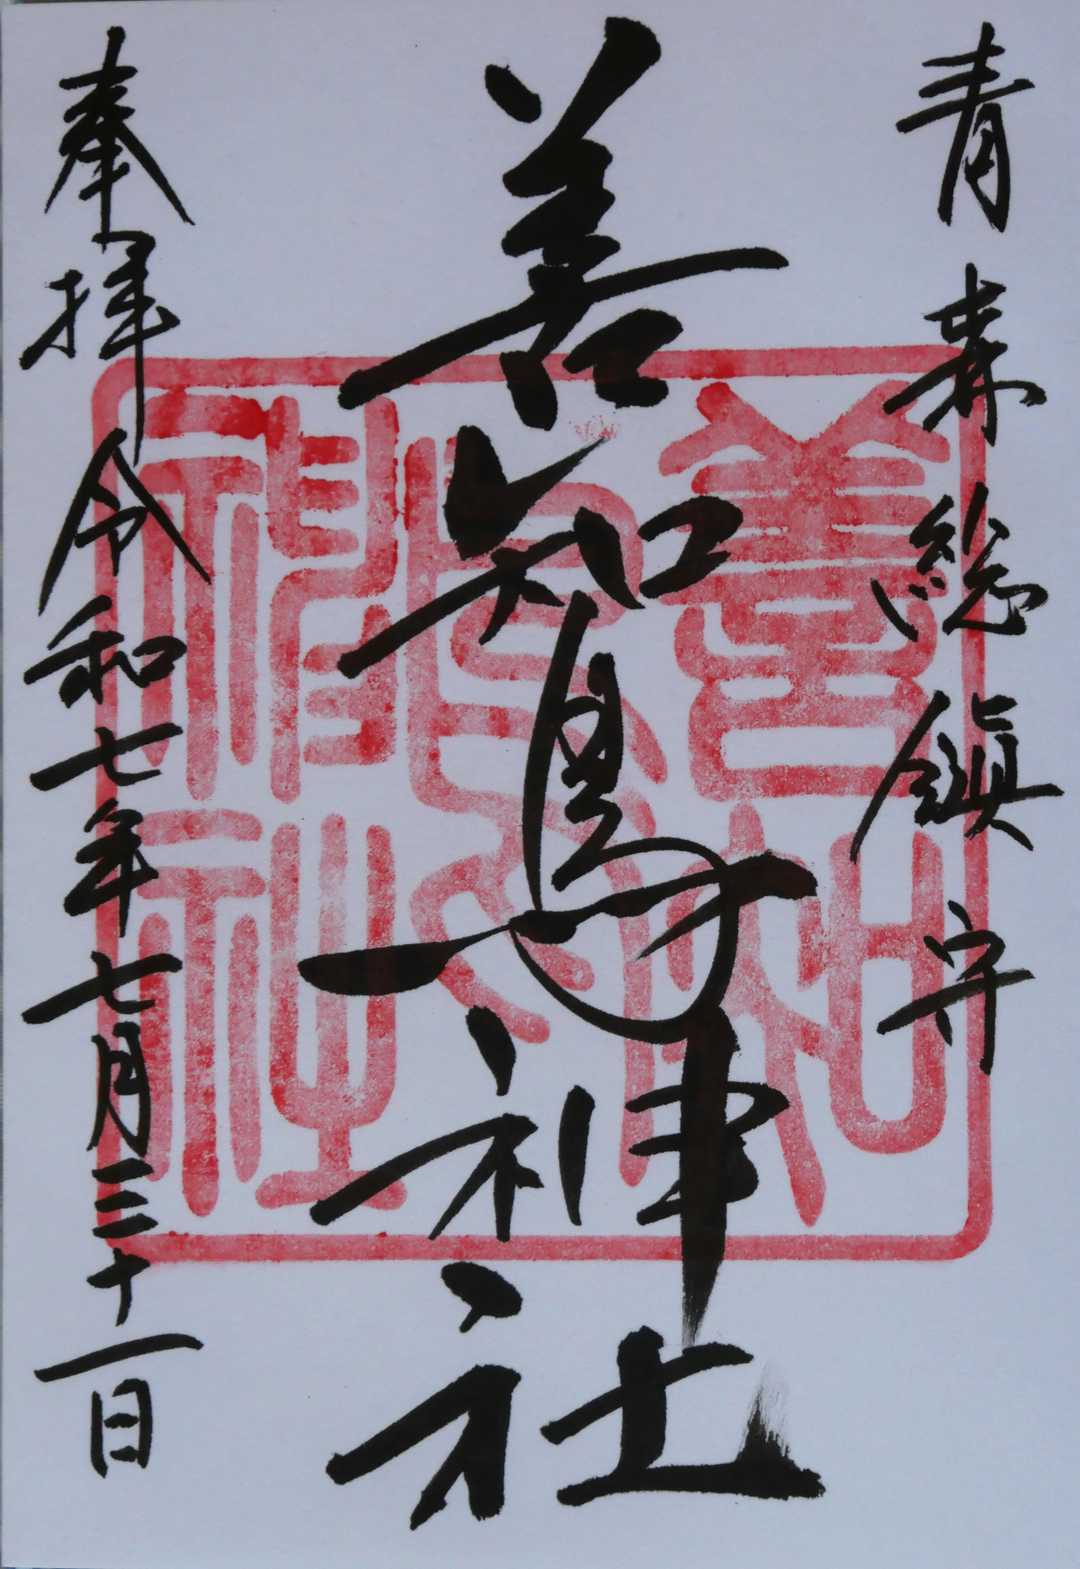 青森総鎮守
善知鳥神社
奉拝 令和七年七月三十一日
善知鳥神社